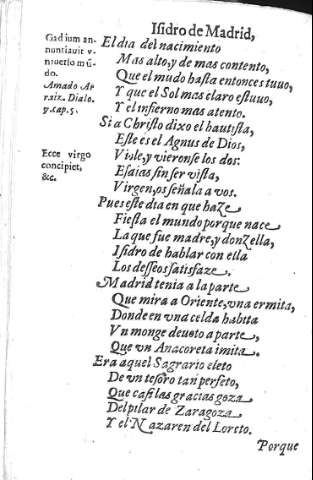 Isidro de Madrid,
Gadium an-
nuntiauit v-
niuerso mũ-
do.
Amado Ar
raiz. Dialo.
y.cap.5.
El dia del nacimiento
Mas alto, y de mas contento,
Que el mũdo hasta entonces tuuo,
Y que el Sol mas claro estuuo,
Y el infierno mas atento.
Si a Christo dixo el bautista,
Este es el Agnus de Dios,
Ecce virgo
concipiet,
&c.
Viole, y vieronse los dos:
Esaias sin ser vista,
Virgen, os señala a vos.
Pues este dia en que haze
Fiesta el mundo porque nace
La que fue madre, y donzella,
Isidro de hablar con ella
Los desseos satisfaze.
Madrid tenia a la parte
Que mira a Oriente, vna ermita,
Donde en vna celda habita
Vn monge deuoto a parte,
Que vn Anacoreta imita.
Era aquel Sagrario eleto
De vn tesoro tan perfeto,
Que casi las gracias goza
Del pilar de Zaragoza
Y el Nazaren del Loreto.
Porque